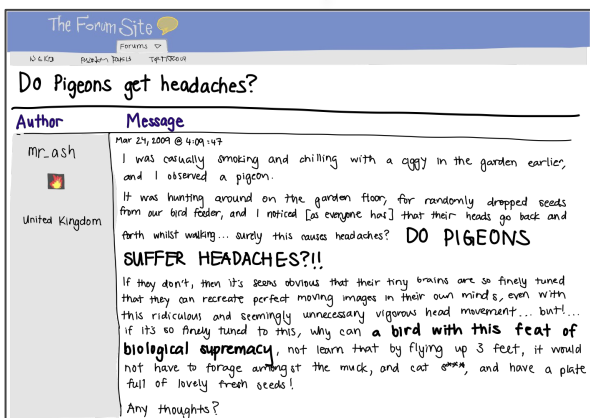 The Forum Site
Forums
Do Pigeons get headaches?
Author
Message
Mar 24, 2009 @ 4:09:47
mr_ash
United Kingdom
I was casually smoking and chilling with a cggy in the garden earlier,
and I observed a pigeon.
It was hunting around on the garden floor, for randomly dropped seeds
from our bird feeder, and I noticed [as everyone has] that their heads go back and
forth whilst walking... surely this causes headaches? DO PIGEONS
SUFFER HEADACHES?!!
If they don't, then it's seems obvious that their tiny brains are so finely tuned
that they can recreate perfect moving images in their own minds, even with
this ridiculous and seemingly unnecessary vigorous head movement... but!...
if it's so finely tuned to this, why can a bird with this feat of
biological supremacy, not learn that by flying up 3 feet, it would
not have to forage amongst the muck, and cat s***, and have a plate
full of lovely fresh seeds!
Any thoughts?